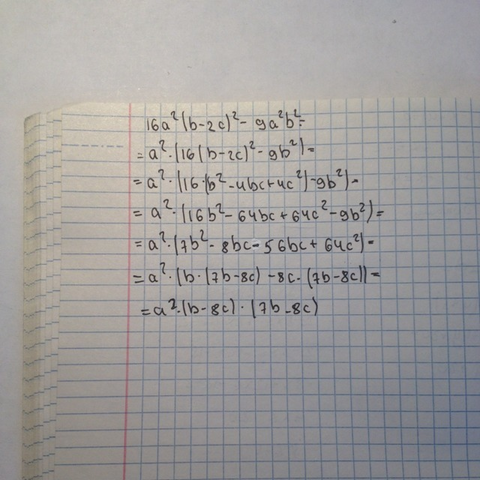 16a²(b-2c)² - 9a²b² =
= a²·(16(b-2c)² - 9b²) =
= a²·(16·(b² - 4bc + 4c²) - 9b²) =
= a²·(16b² - 64bc + 64c² - 9b²) =
= a²·(7b² - 8bc - 56bc + 64c²) =
= a²·(b·(7b-8c) - 8c·(7b-8c)) =
= a²·(b-8c)·(7b-8c)